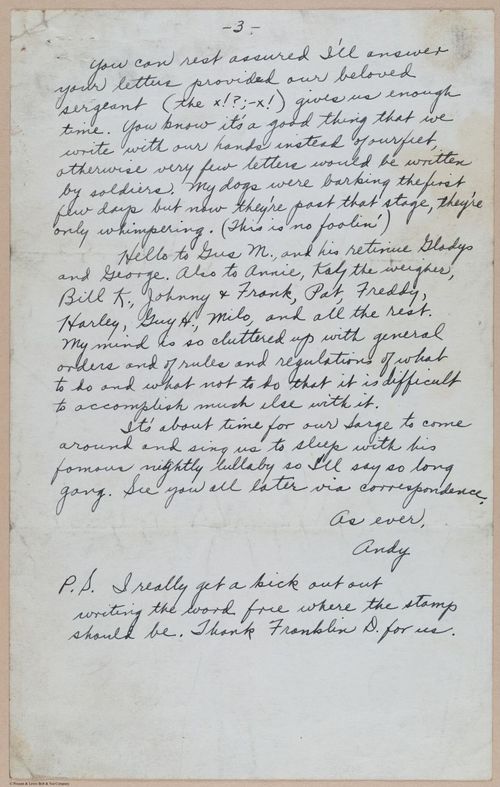 -3-
You can rest assured I'll answer
your letters provided our beloved
sergeant (the x!?;-x!) gives us enough
time. You know it's a good thing that we
write with our hands instead of our feet
otherwise very few letters would be written
by soldiers. My dogs were barking the first
few days but now they're past that stage, they're
only whimpering. (This is no foolin')
Hello to Gus M., and his retinue Gladys
and George. Also to Annie, Katy the weigher,
Bill K., Johnny & Frank, Pat, Freddy,
Harley, Guy H., Milo, and all the rest.
My mind is so cluttered up with general
orders and of rules and regulations of what
to do and what not to do that it is difficult
to accomplish much else with it.
It's about time for our Sarge to come
around and sing us to sleep with his
famous nightly lullaby so I'll say so long
gang. See you all later via correspondence.
As ever,
Andy
P.S. I really get a kick out out
writing the word free where the stamp
should be. Thank Franklin D. for us.